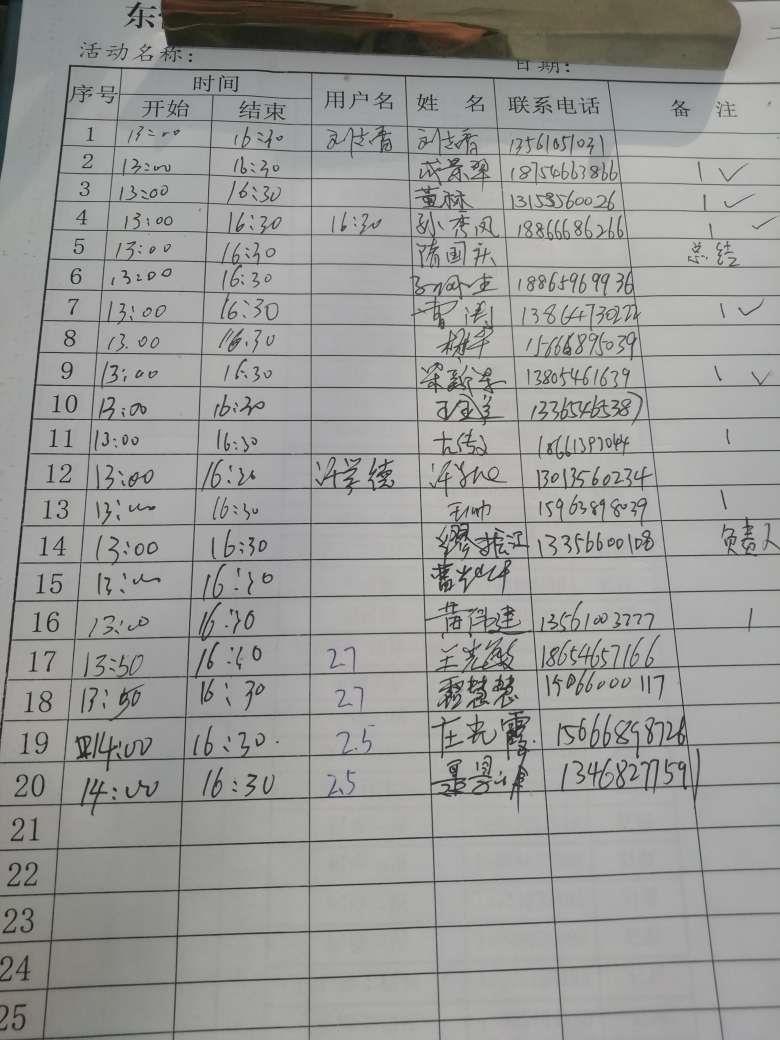 东
活动名称： 日期：
序号 时间 用户名 姓 名 联系电话 备 注
开始 结束
1 13:00 16:30 刘志香 刘志香 13561051031
2 13:00 16:30 18754663866 1 ✓
3 13:00 16:30 黄林 13158560026 1 ✓
4 13:00 16:30 16:30 孙秀凤 18866686266 1 ✓
5 13:00 16:30 隋国兵 总结
6 13:00 16:30 18865969936
7 13:00 16:30 13864730222 1 ✓
8 13:00 16:30 15666895039
9 13:00 16:30 13805461639 1 ✓
10 13:00 16:30 13365465387
11 13:00 16:30 18661397044 1
12 13:00 16:30 许学德 许学德 13013560234
13 13:00 16:30 王帅 15963898039 1
14 13:00 16:30 缪振江 13356600108 负责人
15 13:00 16:30
16 13:00 16:30 苗伟建 13561003777 1
17 13:50 16:40 27 王光敏 18654657166
18 13:50 16:30 27 慧慧 15066000117
19 14:00 16:30 2.5 庄光霞 15666898726
20 14:00 16:30 2.5 13468277591
21
22
23
24
25